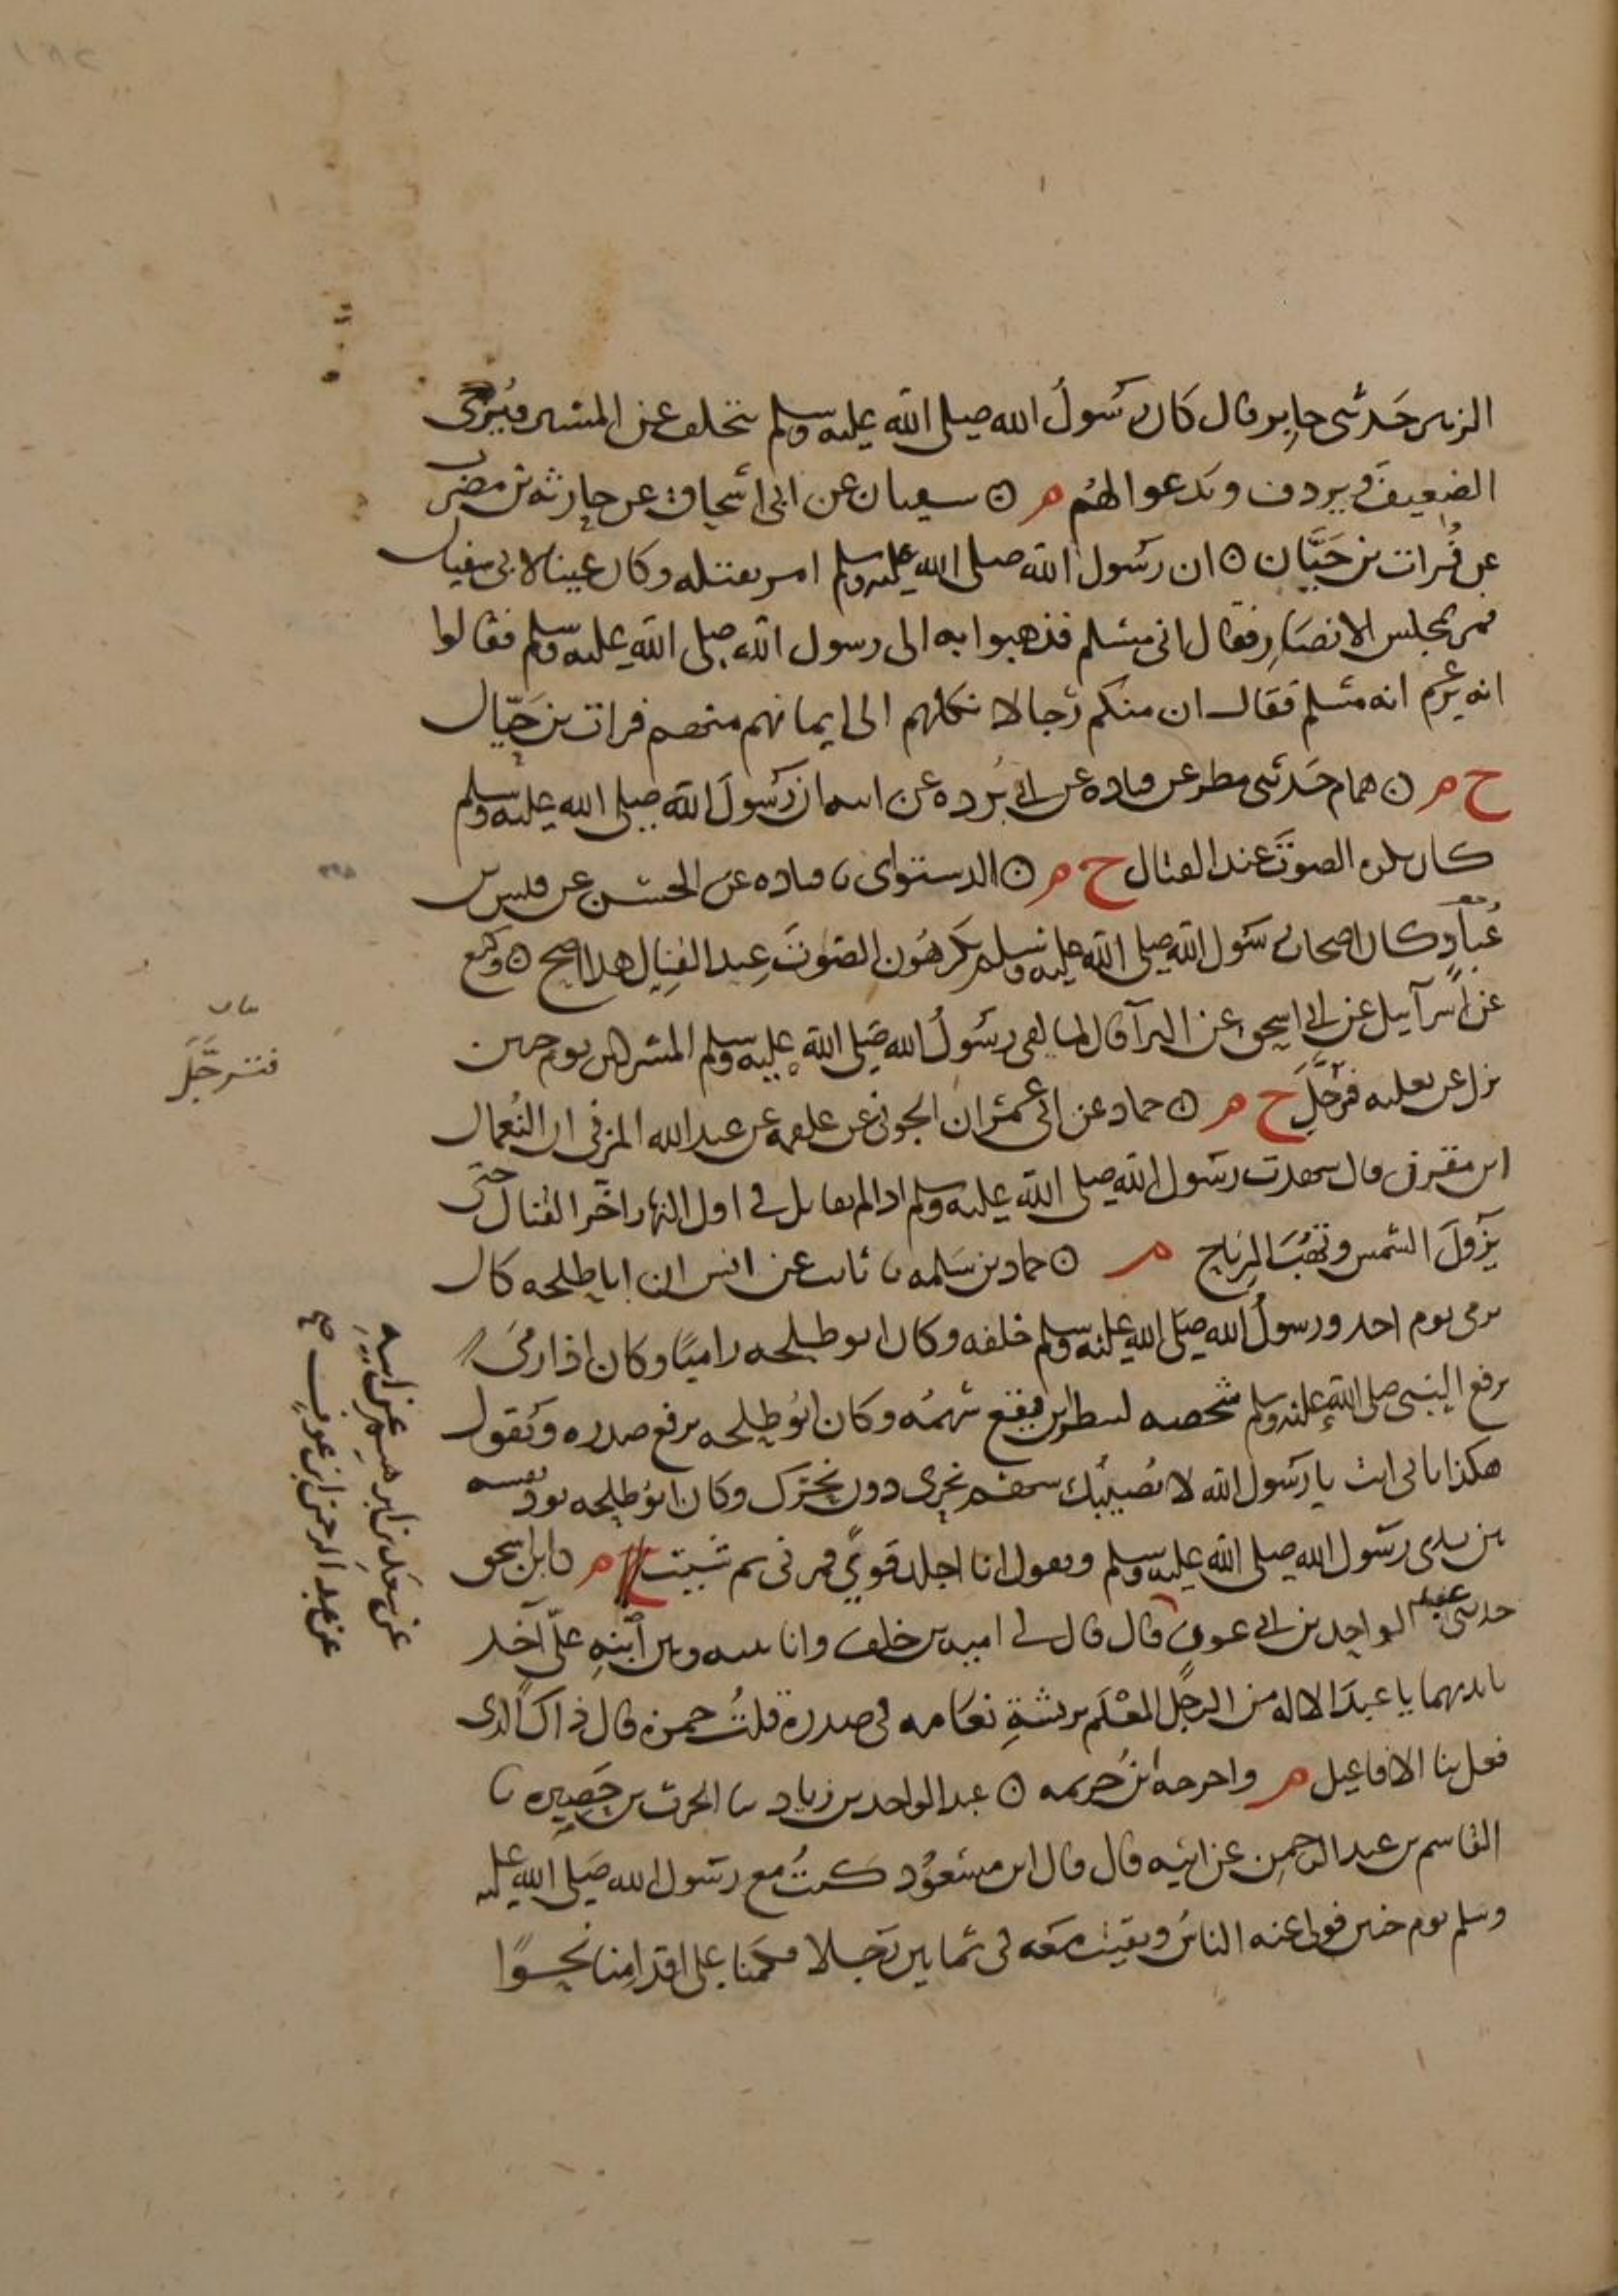 الزبير حدثني جابر قال كان رسول الله صلى الله عليه وسلم يتخلف عن المسير فيزجى
الضعيف ويردف ويدعوا لهم م ⊙ سفيان عن ابي اسحاق عن حارثة بن مضرب
عن فرات بن حيان ⊙ ان رسول الله صلى الله عليه وسلم امر بقتله وكان عينا لابي سفيان
فمر بمجلس الانصار فقال اني مسلم فذهبوا به الى رسول الله صلى الله عليه وسلم فقالوا
انه يزعم انه مسلم فقال ان منكم رجالا نكلهم الى ايمانهم منهم فرات بن حيان
خ م ⊙ همام حدثني مطر عن قتادة عن ابي بردة عن ابيه ان رسول الله صلى الله عليه وسلم
كان يكره الصوت عند القتال خ م ⊙ الدستواي نا قتادة عن الحسن عن قيس بن
عباد وكان اصحاب رسول الله صلى الله عليه وسلم يكرهون الصوت عند القتال هذا اصح ⊙ وكيع
عن اسرآييل عن ابي اسحق عن البرآ قال لما لقي رسول الله صلى الله عليه وسلم المشركين يوم حنين
نزل عن بغلته فترجل خ م ⊙ حماد عن ابي عمران الجوني عن علقمة عن عبد الله المزني ان النعمان
ابن مقرن قال شهدت رسول الله صلى الله عليه وسلم اذا لم يقاتل في اول النهار اخر القتال حتى
يزول الشمس وتهب الرياح م ⊙ حماد بن سلمة نا ثابت عن انس ان ابا طلحة كان
يرمي يوم احد ورسول الله صلى الله عليه وسلم خلفه وكان ابو طلحة راميا وكان اذا رمى
يرفع النبي صلى الله عليه وسلم شخصه لينظر اين يقع سهمه وكان ابو طلحة يرفع صدره ويقول
هكذا بابي انت يا رسول الله لا يصيبك سهم نحري دون نحرك وكان ابو طلحة نفسه
بين يدي رسول الله صلى الله عليه وسلم ويقول انا اجلد قوي ثبت م نا ابن اسحق
حدثني عبد الواحد بن ابي عون قال قال لي امية بن خلف وانا بينه وبين ابنه علي آخذ
بايديهما يا عبد الاله من الرجل المعلم بريشة نعامه في صدره قلت حمزة قال ذاك الذي
فعل بنا الافاعيل م واخرجه ابن خزيمة ⊙ عبد الواحد بن زياد نا الحرث بن حصيرة نا
القاسم بن عبد الرحمن عن ابيه قال قال ابن مسعود كنت مع رسول الله صلى الله عليه
وسلم يوم حنين فولى عنه الناس وبقيت معه في ثمانين رجلا فكنا على اقدامنا نحوا
بيان
فترجل
عن سعد بن ابرهيم عن ابيه
عن عبد الرحمن ابن عوف صح